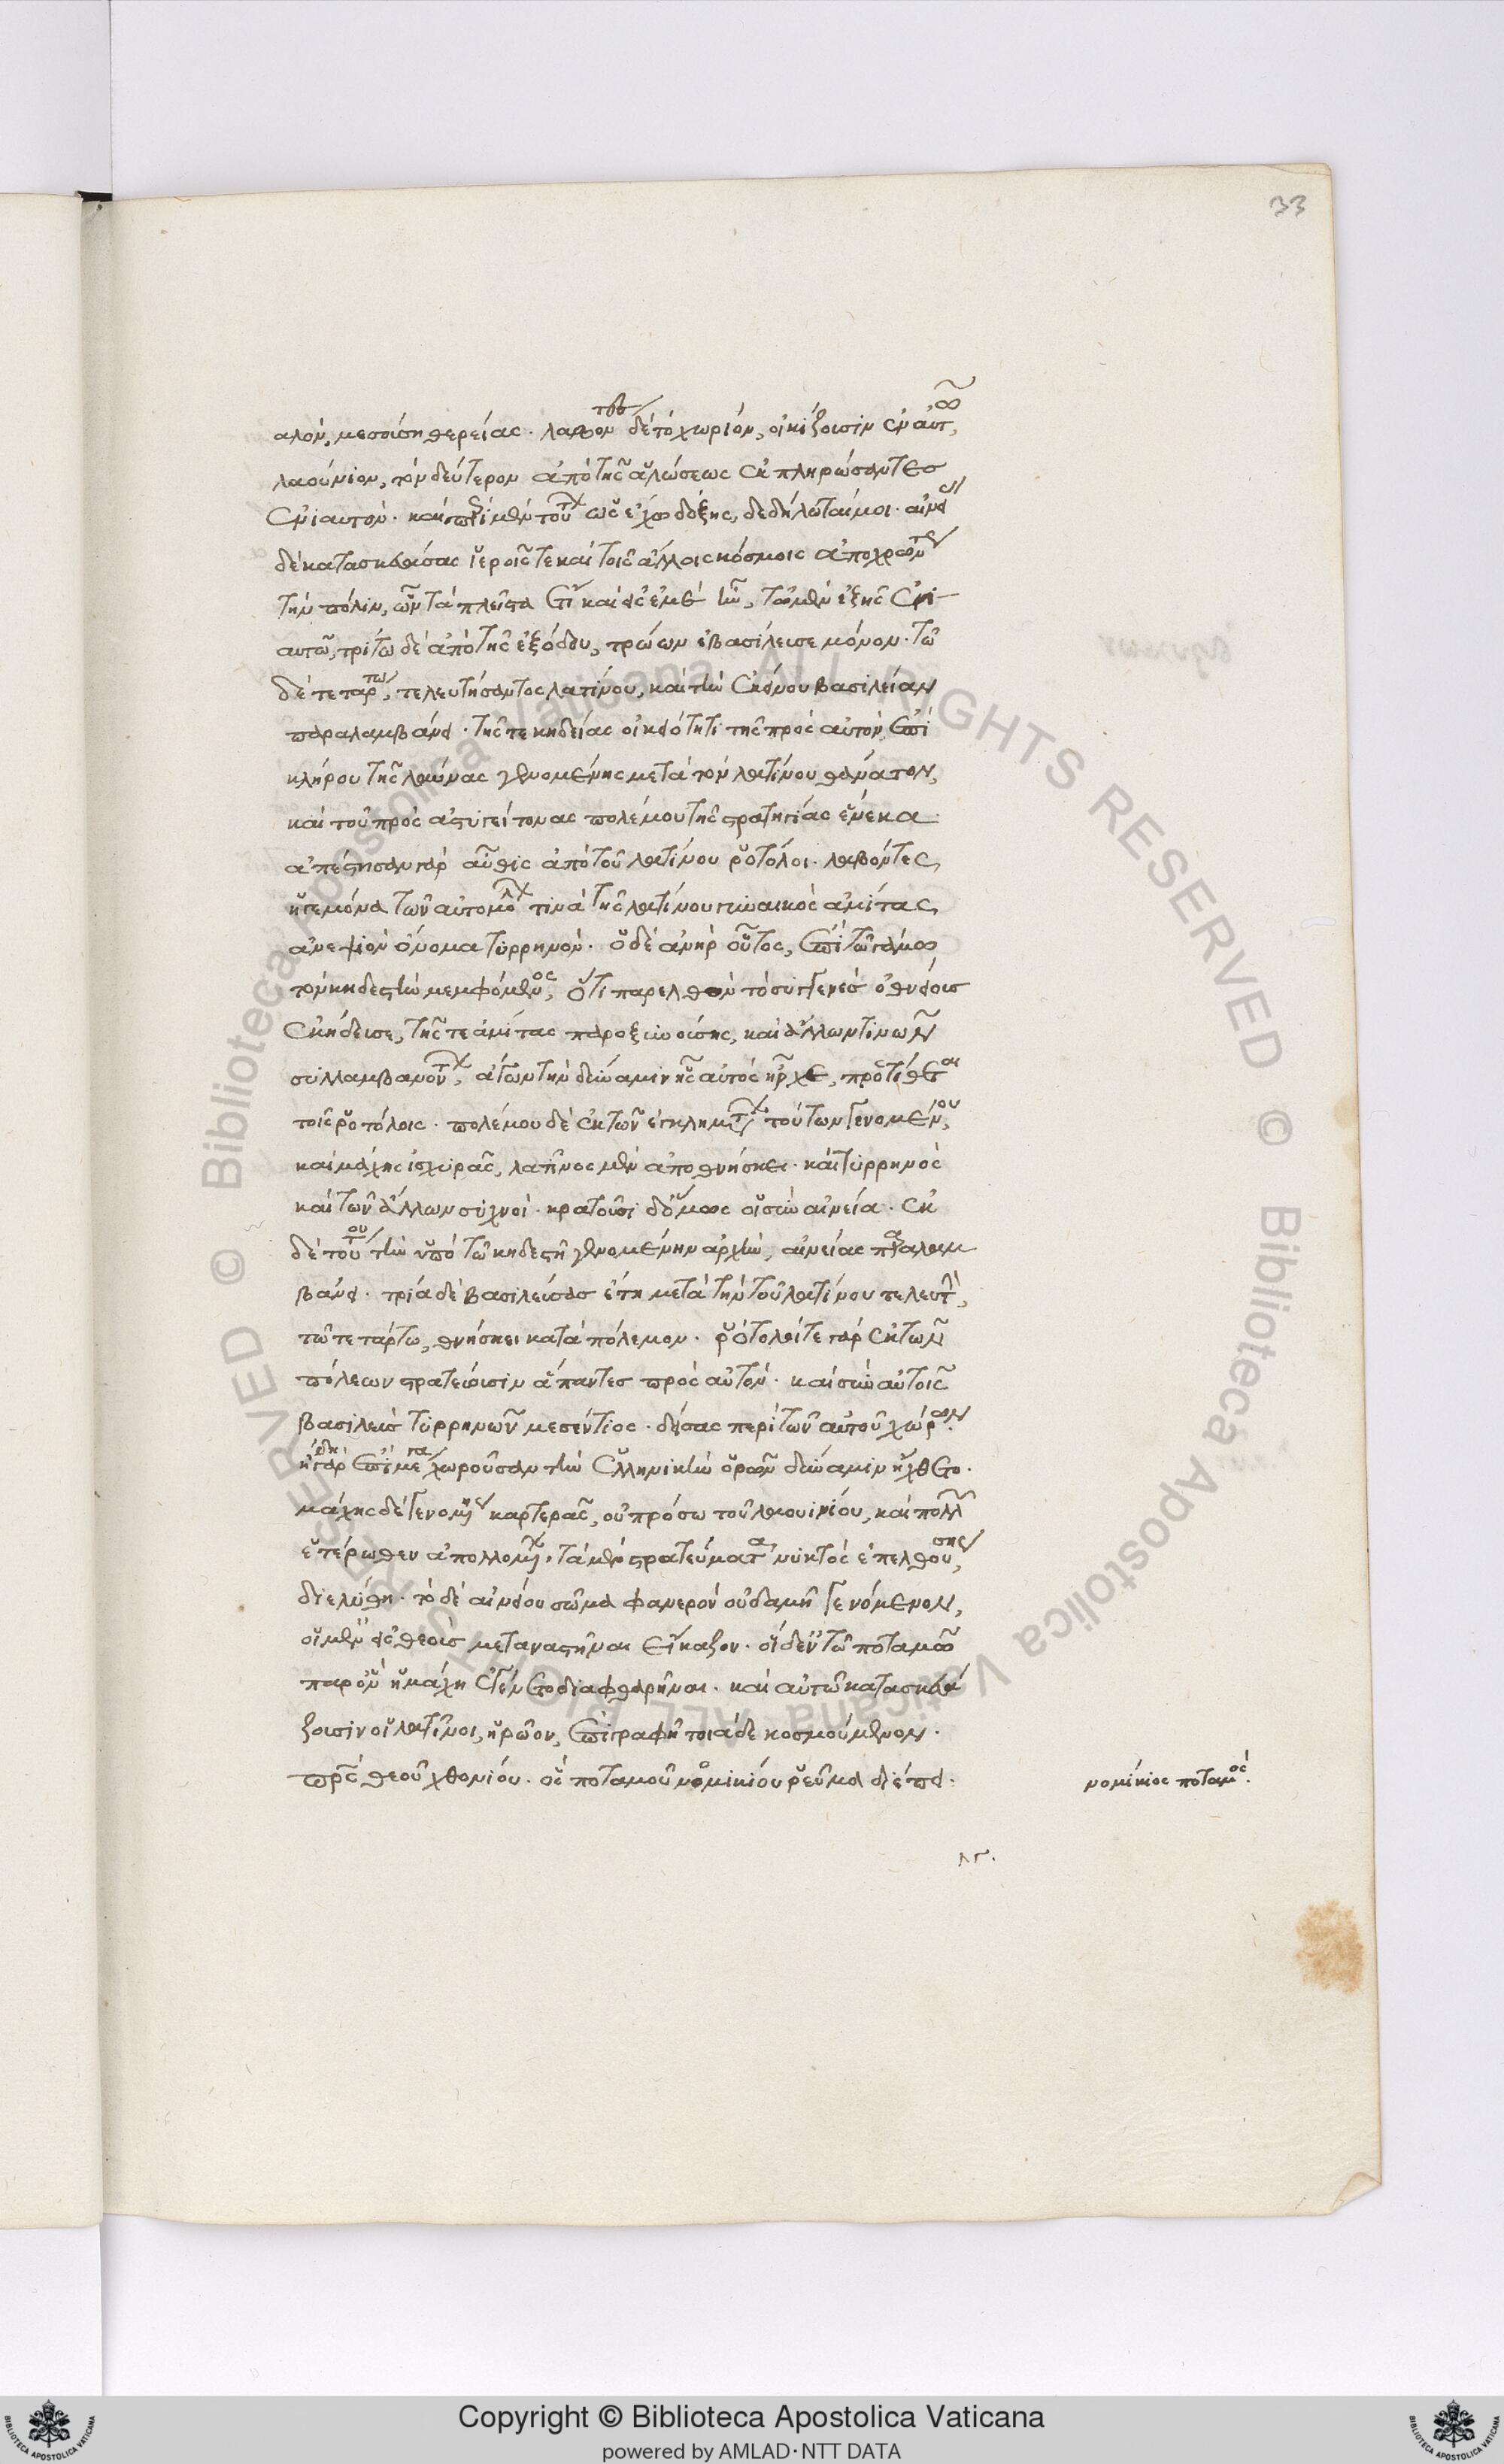 33
αλόν, μεσούσῃ θερείας. λαβόντες δὲ τὸ χωρίον, οἰκίζουσιν ἐν αὐτῶ
λαούνιον, τὸν δεύτερον ἀπὸ τῆς ἁλώσεως ἐκπληρώσαντες
ἐνιαυτόν. καὶ περὶ μὲν τούτων ὡς εἶχον δόξης, δεδήλωταί μοι. αἰνείας
δὲ κατασκευάσας ἱεροῖς τε καὶ τοῖς ἄλλοις κόσμοις ἀποχρώντως
τὴν πόλιν, ὧν τὰ πλεῖστα ἔτι καὶ εἰς ἐμὲ ἦν, τῶ μὲν ἑξῆς ἐνι-
αυτῶ, τρίτω δὲ ἀπὸ τῆς ἐξόδου, τρώων ἐβασίλευσε μόνον. τῶ
δὲ τετάρτω, τελευτήσαντος λατίνου, καὶ τὴν ἐκείνου βασιλείαν
παραλαμβάνει. τῆς τε κηδείας οἰκειότητι τῆς πρὸς αὐτὸν ἐπι
κλήρου τῆς λαύνας γενομένης μετὰ τὸν λατίνου θάνατον,
καὶ τοῦ πρὸς ἀστυγείτονας πολέμου τῆς στρατηγίας ἕνεκα
ἀπέστησαν γὰρ αὖθις ἀπὸ τοῦ λατίνου ῥότολοι. λαβόντες
ἡγεμόνα τῶν αὐτομόλων τινὰ τῆς λατίνου γυναικὸς ἀμίτας
ἀνεψιὸν ὄνομα τυρρηνόν. ὁ δὲ ἀνὴρ οὗτος, ἐπὶ τῶ γάμω
τὸν κηδεστὴν μεμφόμενος, ὅτι παρελθὼν τὸ συγγενὲς ὀθνείοις
ἐκήδευσε, τῆς τε ἀμίτας παροξυνούσης, καὶ ἄλλων τινῶν
συλλαμβανόντων, ἄγων τὴν δύναμιν ἧς αὐτὸς ἦρχε, προστίθεται
τοῖς ῥοτόλοις. πολέμου δὲ ἐκ τῶν ἐγκλημάτων τούτων γενομένου,
καὶ μάχης ἰσχυρᾶς, λατῖνος μὲν ἀποθνήσκει. καὶ τυρρηνὸς
καὶ τῶν ἄλλων συχνοί. κρατοῦσι δ' ὅμως οἱ σὺν αἰνεία. ἐκ
δὲ τούτου τὴν ὑπὸ τῶ κηδεστῆ γενομένην ἀρχὴν, αἰνείας παραλαμ
βάνει. τρία δὲ βασιλεύσας ἔτη μετὰ τὴν τοῦ λατίνου τελευτὴν,
τῶ τετάρτω, θνήσκει κατὰ πόλεμον. ῥότολοί τε γὰρ ἐκ τῶν
πόλεων στρατεύουσιν ἅπαντες πρὸς αὐτόν. καὶ σὺν αὐτοῖς
βασιλεὺς τυρρηνῶν μεσέντιος. δείσας περὶ τῶν αὐτοῦ χώρων.
ἤδη γὰρ ἐπὶ μέγα χωροῦσαν τὴν ἑλληνικὴν ὁρῶν δύναμιν ἤχθετο.
μάχης δὲ γενομένης καρτερᾶς, οὐ πρόσω τοῦ λαουϊνίου, καὶ πολλῶν
ἑτέρωθεν ἀπολλομένων. τὰ μὲν στρατεύματα νυκτὸς ἐπελθούσης,
διελύθη. τὸ δὲ αἰνείου σῶμα φανερὸν οὐδαμῇ γενόμενον,
οἱ μὲν εἰς θεοὺς μεταναστῆναι εἴκαζον. οἱ δ' ἐν τῶ ποταμῶ
παρ' ὃν ἡ μάχη ἐγένετο διαφθαρῆναι. καὶ αὐτῶ κατασκευά
ζουσιν οἱ λατῖνοι, ἡρῶον, ἐπιγραφῇ τοιᾷδε κοσμούμενον.
πατρὸς θεοῦ χθονίου. ὃς ποταμοῦ νομικίου ῥεῦμα διέπει.
νομίκιος ποταμός.
λγ.
Copyright © Biblioteca Apostolica Vaticana
powered by AMLAD·NTT DATA